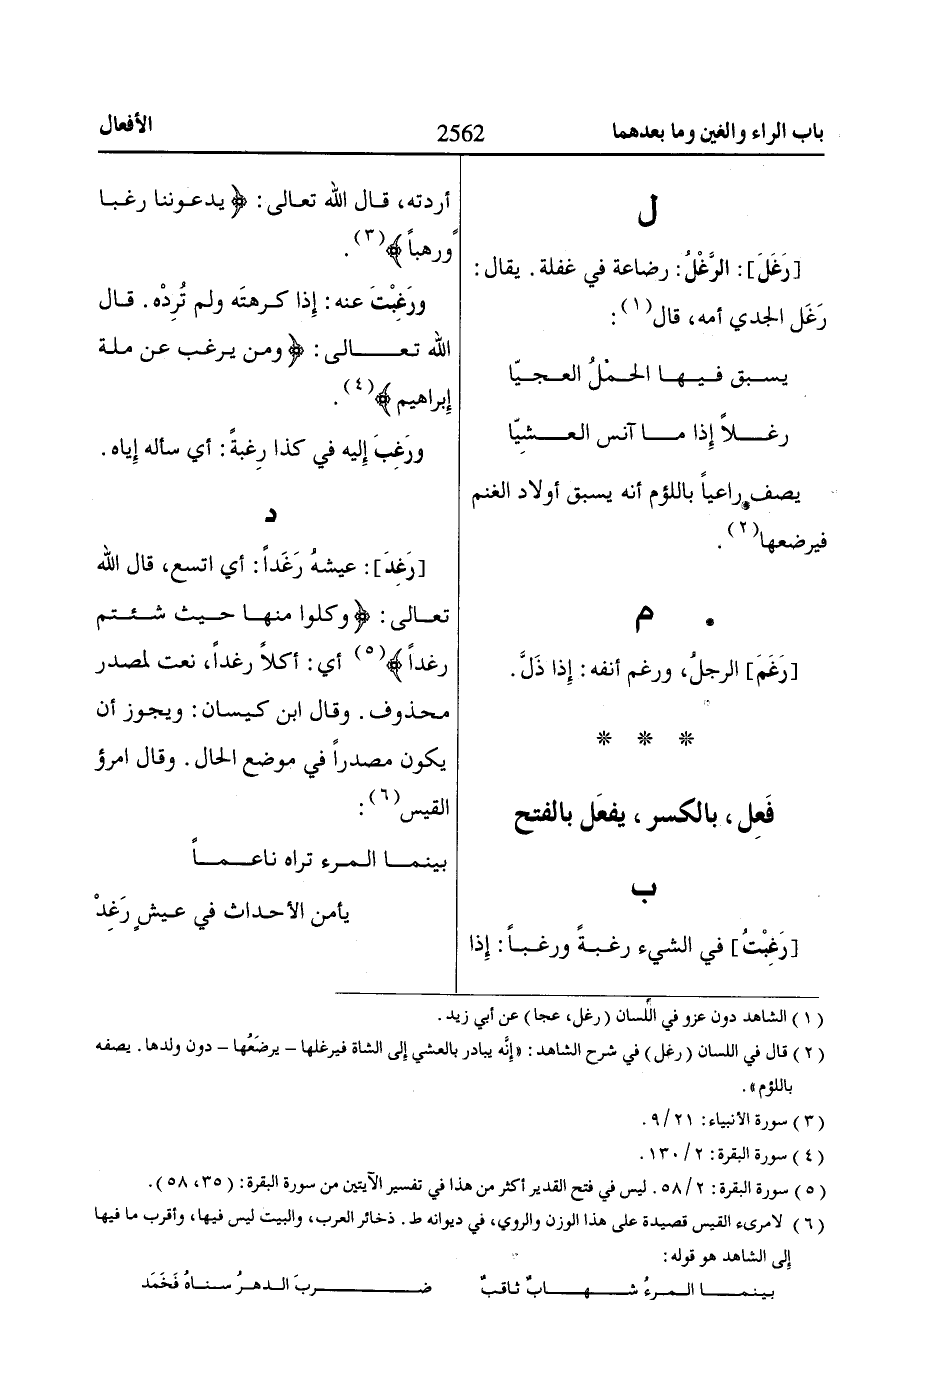 باب الراء والغين وما بعدهما
2562
الأفعال
ل
[رَغَلَ]: الرَّغْلُ: رضاعة في غفلة. يقال:
رَغَل الجدي أمه، قال(١):
يسبق فيها الحمْلُ العجيّا
رغلاً إذا ما آنس العشيّا
يصف راعياً باللؤم أنه يسبق أولاد الغنم
فيرضعها(٢).
م
[رَغَمَ] الرجلُ، ورغم أنفه: إذا ذَلَّ.
* * *
فَعِل، بالكسر، يفعَل بالفتح
ب
[رَغِبْتُ] في الشيء رغبةً ورغباً: إذا
أردته، قال الله تعالى: ﴿يدعوننا رغبا
ورهباً﴾(٣).
ورَغِبْتَ عنه: إذا كرهتَه ولم تُرِدْه. قال
الله تعالى: ﴿ومن يرغب عن ملة
إبراهيم﴾(٤).
ورَغِبَ إليه في كذا رغبةً: أي سأله إياه.
د
[رَغِدَ]: عيشهُ رَغَداً: أي اتسع، قال الله
تعالى: ﴿وكلوا منها حيث شئتم
رغداً﴾(٥) أي: أكلاً رغداً، نعت لمصدر
محذوف. وقال ابن كيسان: ويجوز أن
يكون مصدراً في موضع الحال. وقال امرؤ
القيس(٦):
بينما المرء تراه ناعماً
يأمن الأحداث في عيشٍ رَغِدْ
(١) الشاهد دون عزو في اللِّسان (رغل، عجا) عن أبي زيد.
(٢) قال في اللسان (رغل) في شرح الشاهد: «إنَّه يبادر بالعشي إلى الشاة فيرغلها – يرضَعُها – دون ولدها. يصفه
باللؤم».
(٣) سورة الأنبياء: ٩/٢١.
(٤) سورة البقرة: ١٣٠/٢.
(٥) سورة البقرة: ٥٨/٢. ليس في فتح القدير أكثر من هذا في تفسير الآيتين من سورة البقرة: (٣٥، ٥٨).
(٦) لامرىء القيس قصيدة على هذا الوزن والروي، في ديوانه ط. ذخائر العرب، والبيت ليس فيها، وأقرب ما فيها
إلى الشاهد هو قوله:
بينما المرءُ شهابٌ ثاقبٌ ضربَ الدهرُ سناهُ فَخَمَد